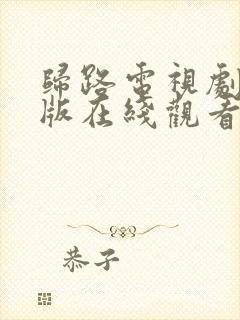 歸路電視劇
版在綫觀看
恭子